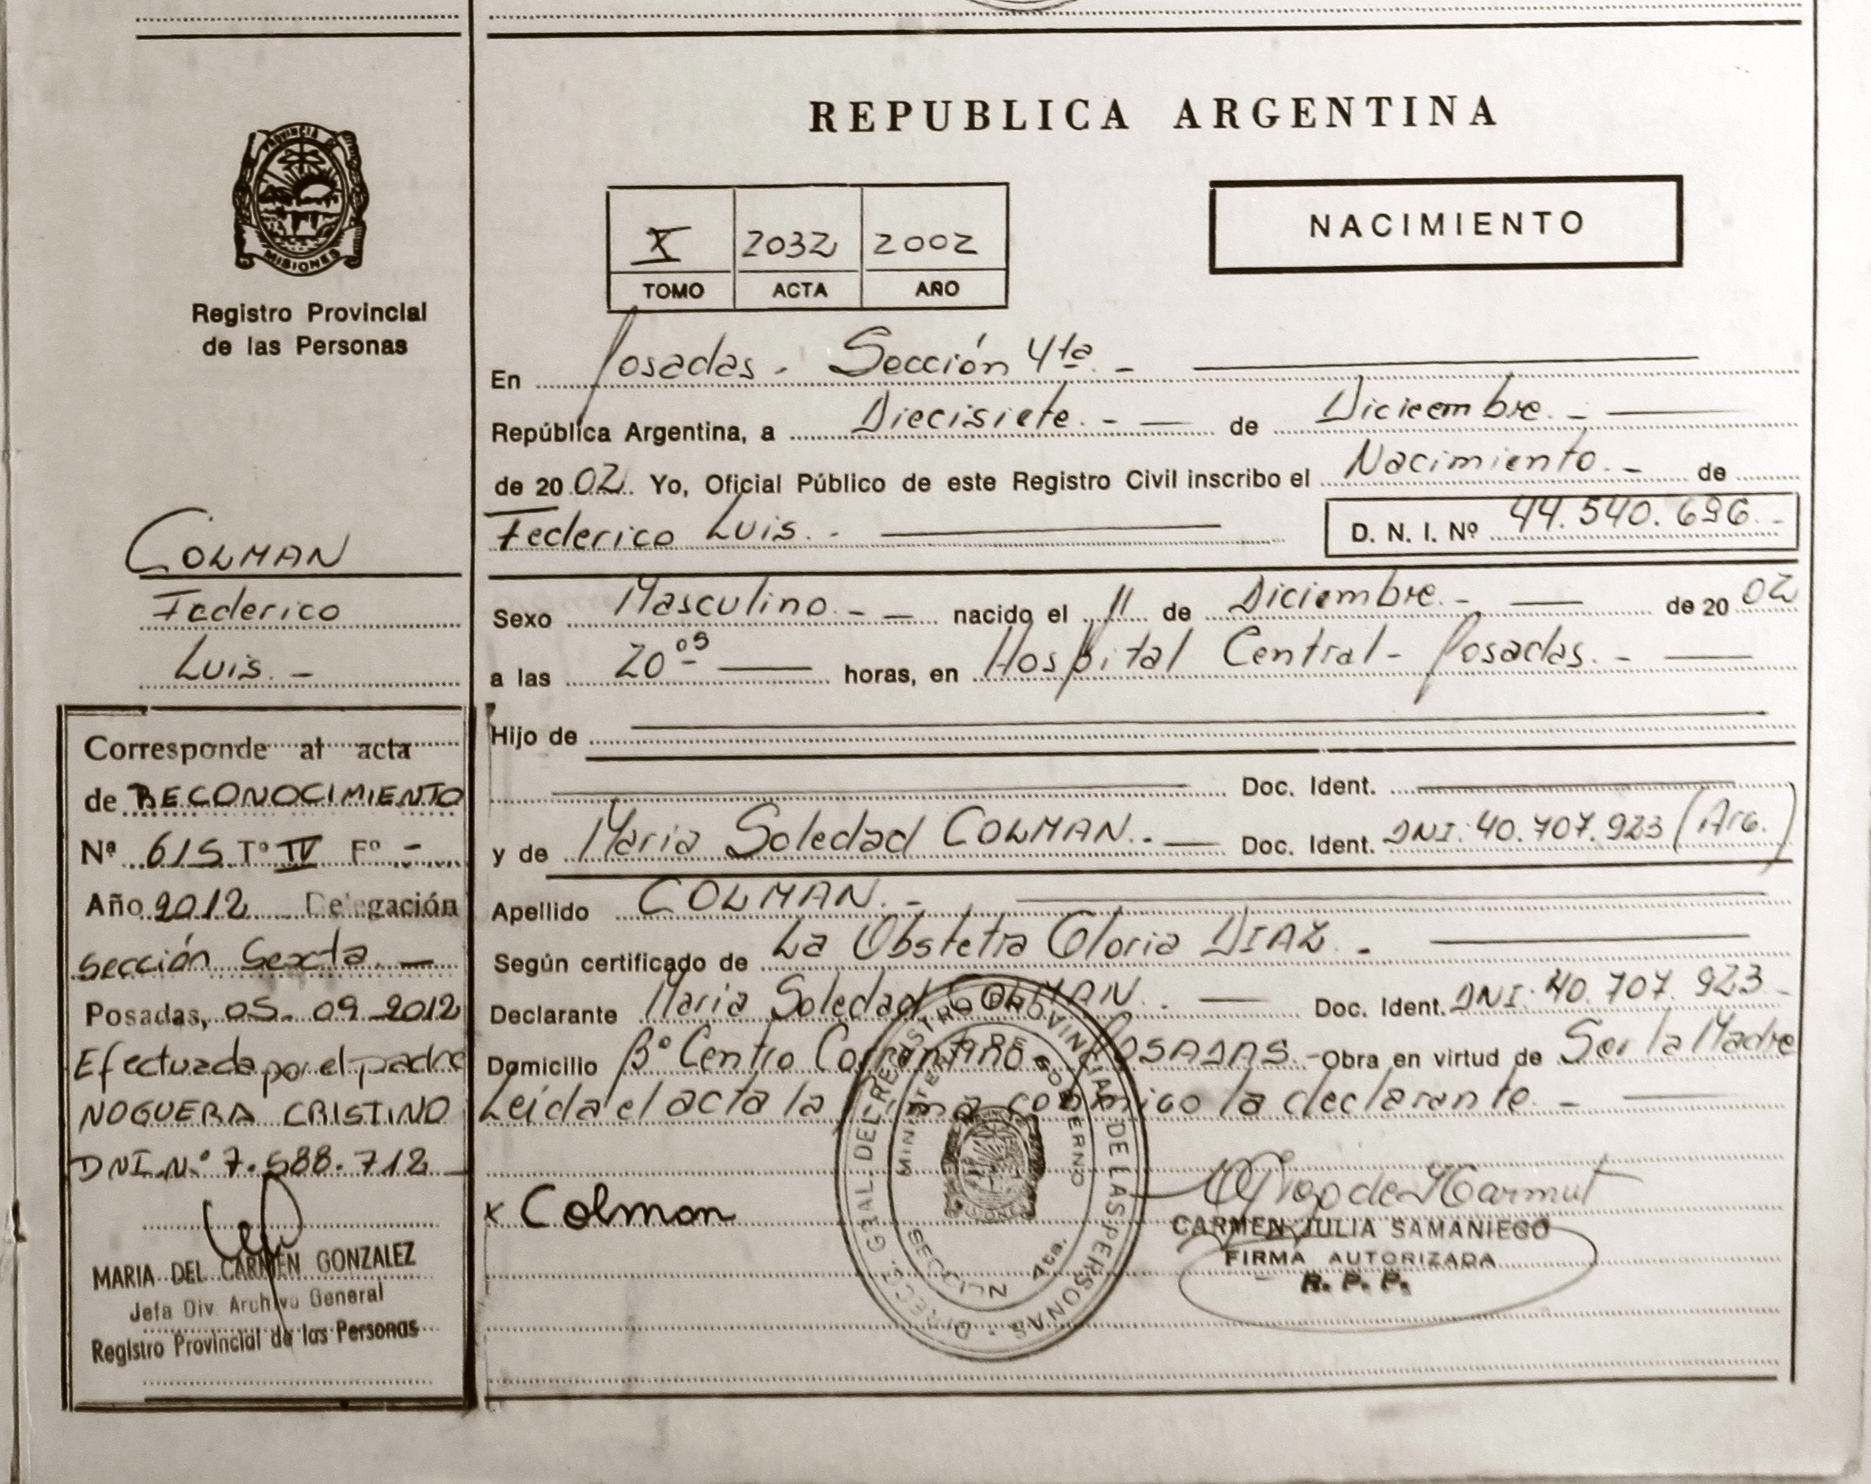 REPUBLICA ARGENTINA
PROVINCIA DE
MISIONES
Registro Provincial
de las Personas
X 2032 2002
TOMO ACTA AÑO
NACIMIENTO
En Posadas - Sección 4ta. -
República Argentina, a Diecisiete. - de Diciembre. -
de 2002. Yo, Oficial Público de este Registro Civil inscribo el Nacimiento. - de
Federico Luis. - D. N. I. Nº 44.540.696. -
COLMAN
Federico
Luis. -
Sexo Masculino. - nacido el 11 de Diciembre. - de 2002
a las 20 05 horas, en Hospital Central - Posadas. -
Hijo de
Doc. Ident.
y de Maria Soledad COLMAN. - Doc. Ident. DNI: 40.707.923 (Arg.)
Apellido COLMAN. -
Según certificado de La Obstetra Gloria DIAZ. -
Declarante Maria Soledad COLMAN. Doc. Ident. DNI: 40.707.923 -
Domicilio Bº Centro Correntino - POSADAS. - Obra en virtud de Ser la Madre
Leída el acta la firma conmigo la declarante. -
x Colman
CARMEN JULIA SAMANIEGO
FIRMA AUTORIZADA
R. P. P.
DIRECC. GRAL. DEL REGISTRO PROVINCIAL DE LAS PERSONAS
MINISTERIO DE GOBIERNO
SECCION 4ta.
Corresponde al acta
de RECONOCIMIENTO
Nº 615 Tº IV Fº -
Año 2012 Delegación
Sección Sexta. -
Posadas, 05. 09. 2012
Efectuada por el padre
NOGUERA CRISTINO
DNI.Nº 7.588.712
MARIA DEL CARMEN GONZALEZ
Jefa Div. Archivo General
Registro Provincial de las Personas